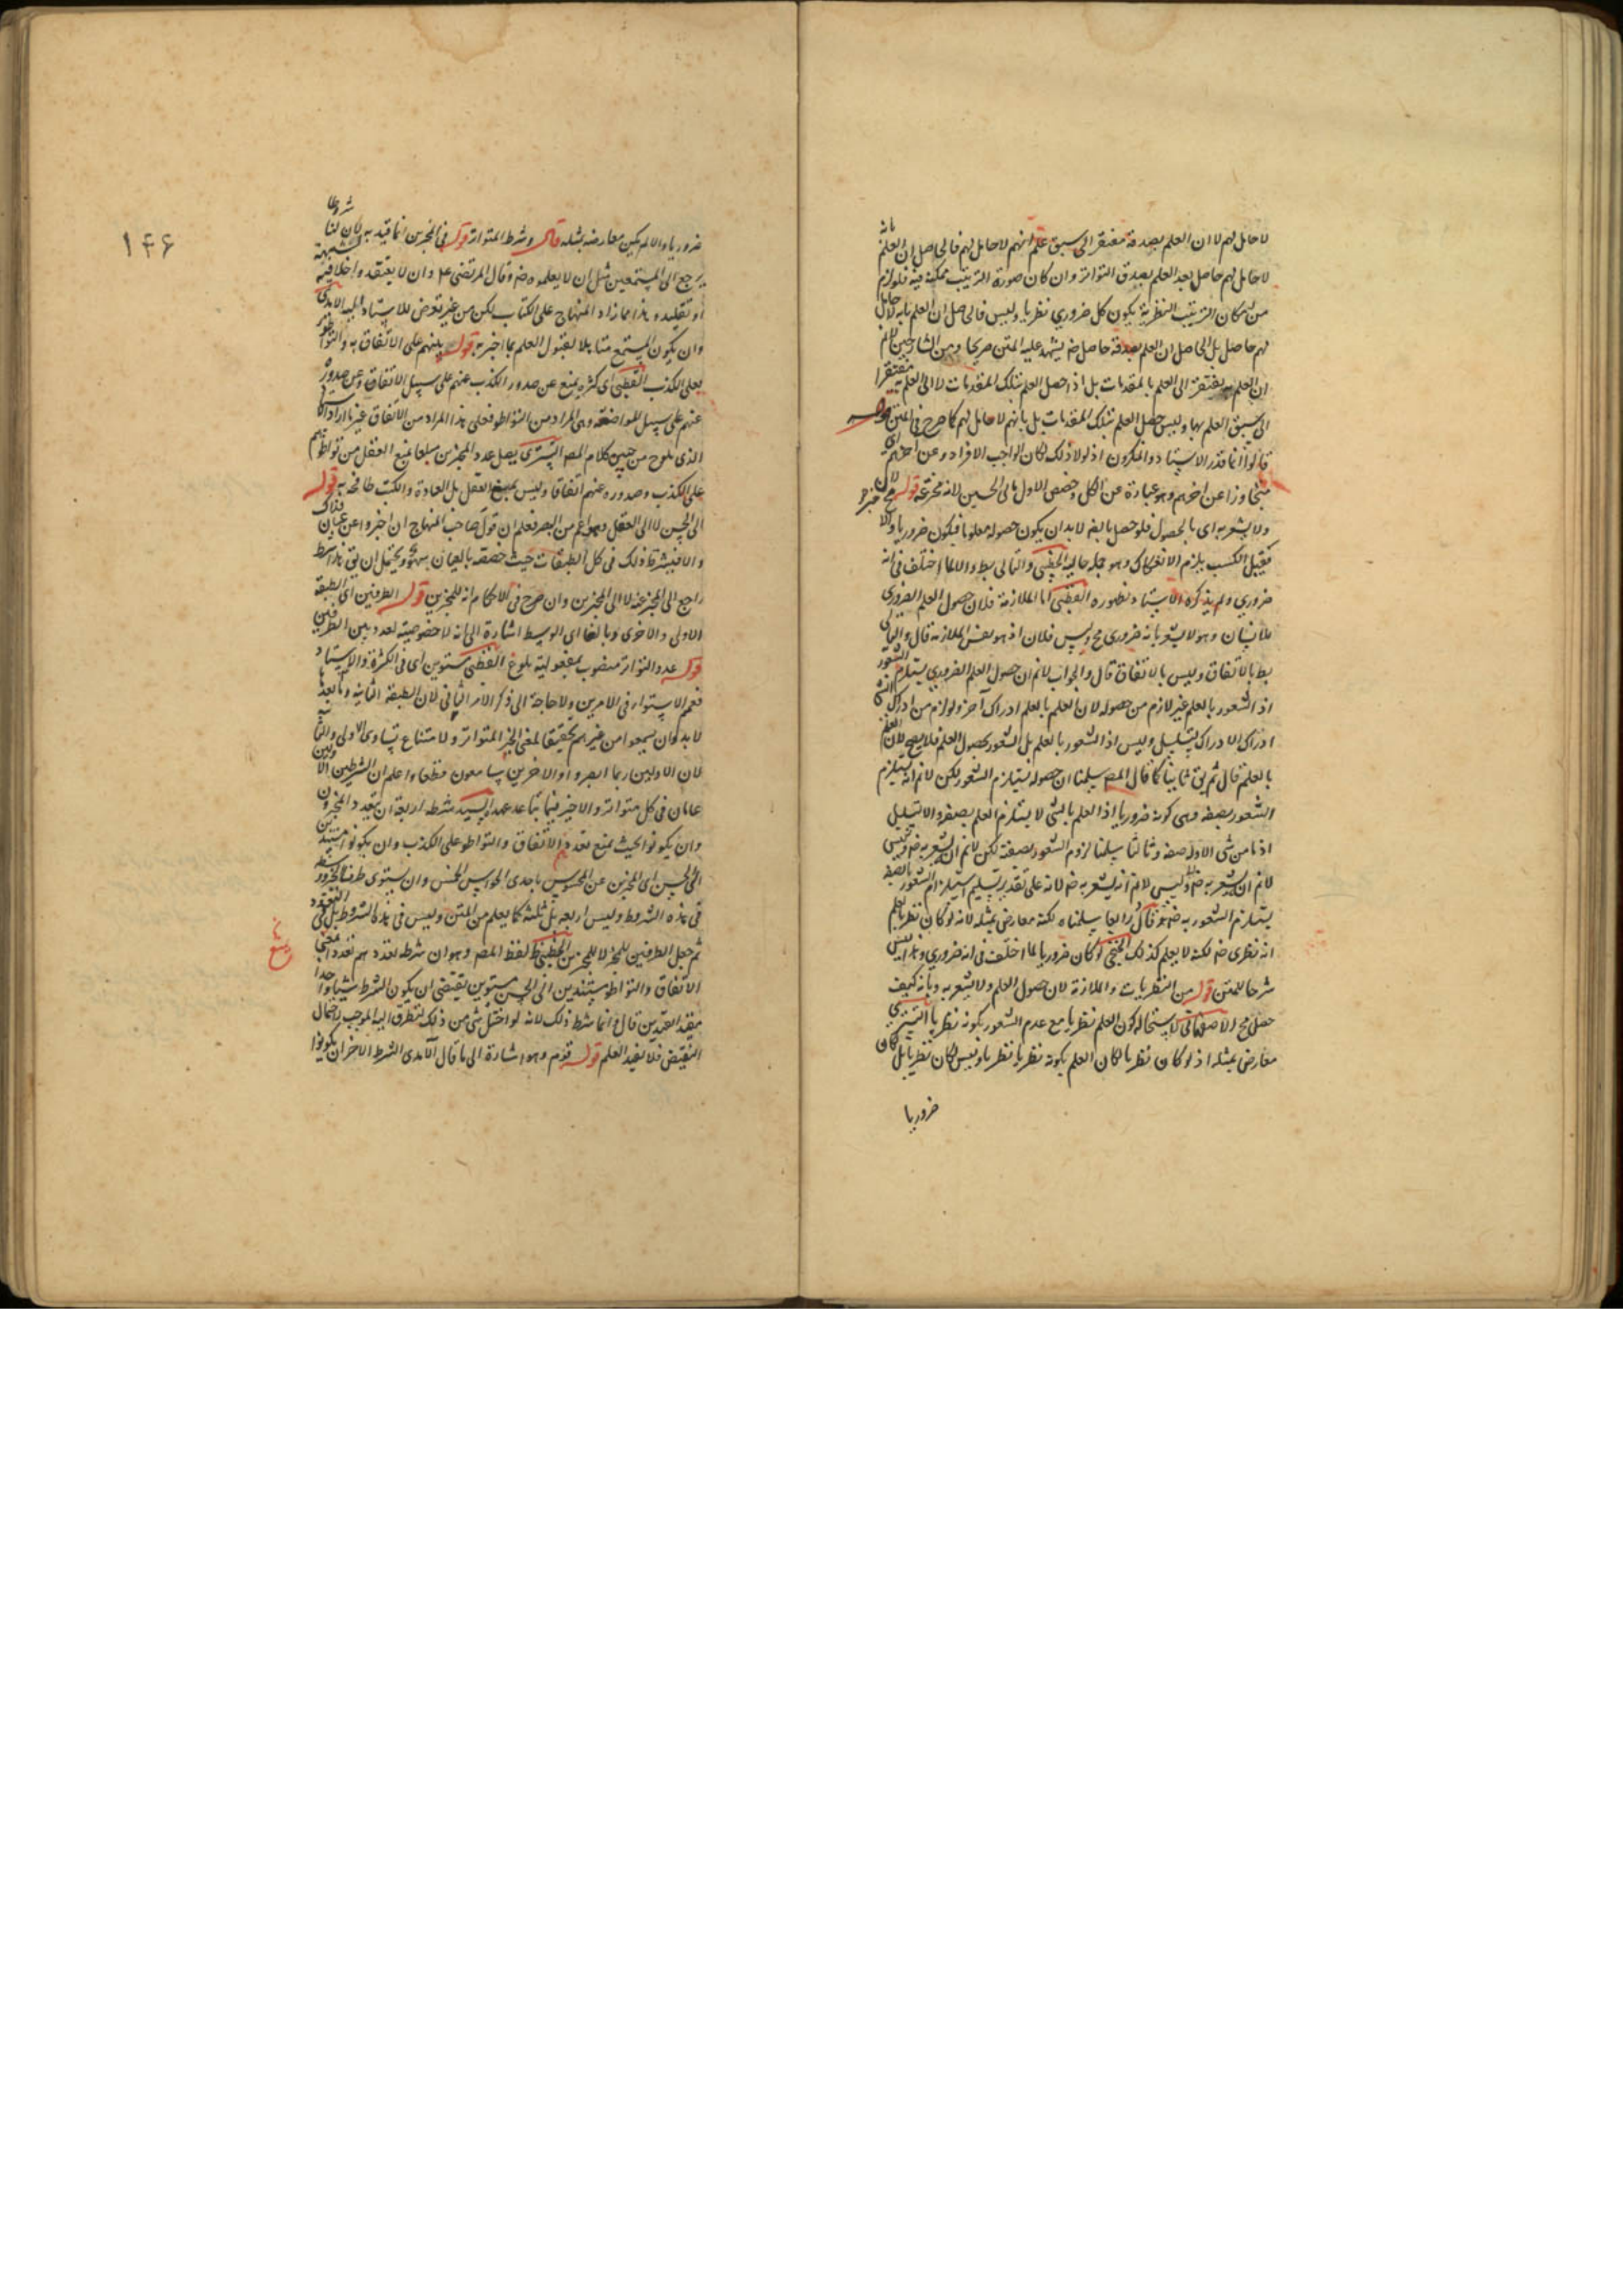 لا حامل لهم لا ان العلم بصدقه مفتقر الى سبق علم انهم لا حامل لهم فالحاصل ان العلم بانه
لا حامل لهم حاصل بعد العلم بصدق التواتر وان كان صورة الترتيب ممكنة فيه فلو لزم
من امكان الترتيب النظرية يكون كل ضروري نظريا وليس فالحاصل ان العلم بانه لا حامل
لهم حاصل بل الحاصل ان العلم بصدقه حاصل يشهد عليه المتن صريحا ومن الشارحين
ان العلم مفتقر الى العلم بالمقدمات بل اذا حصل العلم بتلك المقدمات لا ان العلم مفتقرا
الى سبق العلم بها وليس حصل العلم بتلك المقدمات بل بانهم لا حامل لهم كما صرح في المتن قوله
قالوا انما قدر الاستاد والمنكرون اذ لولا ذلك لكان الواجب الافراد وعن اخرهم اى
متجاوزا عن اخرهم وهو عبارة عن الكل وخصص الاول بالحسين لانه قوله
ولا يشعر به اى بالحصول فلو حصل بالغير لا بد ان يكون حصوله معلوما فيكون ضروريا والا
فقبل الكسب يلزم الانفكاك وهو جملة حالية الخطبى والتالى بط والا لما اختلف فى انه
ضروري ولم يذكره الاستاد وتصوره القطبى اما الملازمة فلان حصول العلم الضروري
للانسان وهو لا يشعر بانه ضروري مح وليس فلان اذ هو نفس الملازمة قال والتالى
بط بالاتفاق وليس بالاتفاق قال والجواب لا نم ان حصول العلم الضروري يستلزم الشعور
اذ الشعور بالعلم غير لازم من حصوله لان العلم بالعلم ادراك آخر ولو لزم من ادراك
ادراك الادراك يتسلسل وليس اذ الشعور بالعلم بل الشعور بحصول العلم فلا يصح لان العلم
بالعلم قال ثم يق ثانيا كما قال المص سلمنا ان حصوله يستلزم الشعور لكن لا نم انه يستلزم
الشعور بصفته وهى كونه ضروريا اذ العلم بالشى لا يستلزم العلم بصفته والا تسلسل
اذ ما من شى الا وله صفة وثالثا سلمنا لزوم الشعور بصفته لكن لا نم ان يشعر به وليس
لا نم ان يشعر به وليس لا نم انه يشعر به لانه على تقدير تسليم استلزام الشعور بالصفة
يستلزم الشعور به قال رابعا سلمناه لكنه معارض بمثله لانه لو كان نظريا لعلم
انه نظرى لكنه لا يعلم كذلك الخنجى لو كان ضروريا لما اختلف فى انه ضروري وهذا ليس
شرحا للمتن قوله من النظريات والملازمة لان حصول العلم ولا يشعر به وبانه كيف
حصل مح الاصفهانى لاستحالة كون العلم نظريا مع عدم الشعور بكونه نظريا التسترى
معارض بمثله اذ لو كان نظريا لكان العلم بكونه نظريا نظريا وليس لكان نظريا بل كان
ضروريا
۱۴۶
ضروريا والا لم يكن معارضه بمثله قال وشرط المتواتر قوله فى المخبرين انما قيد به لان لنا شروطا
يرجع الى المستمعين مثل ان لا يعلموه وقال المرتضى وان لا يعتقدوا خلافه لشبهة
او تقليد وهذا مما زاد المنهاج على الكتاب لكن من غير تعرض للاستاد اليه الامدى
وان يكون المستمع متاهلا لقبول العلم بما اخبر به قوله يمنعهم على الاتفاق به والتواطؤ
يعلى الكذب القطبى اى كثرة يمنع عن صدور الكذب عنهم على سبيل الاتفاق وعن صدوره
عنهم على سبيل المواضعة وهى المراد من التواطؤ فعلى هذا المراد من الاتفاق غير ما اراد
الذى يلوح من كلام المص التسترى يصل عدد المخبرين مبلغا يمنع العقل من تواطؤهم
على الكذب وصدوره عنهم اتفاقا وليس يمنع العقل بل العادة والكتب طافحة به قوله
الى الحس لا الى العقل وهو اعم من البصر فعلم ان قول صاحب المنهاج ان اخبروا عن عيان فذاك
والا فيشترط ذلك فى كل الطبقات حيث خصصه بالعيان سهو ويحتمل ان يق
راجع الى المخبر عنه لا الى المخبرين وان صرح فى الاحكام انه للمخبرين قوله الطرفين اى الطبقة
الاولى والاخرى وبالغا اى الوسط اشارة الى انه لا خصوصية لعدد بين الطرفين
قوله عدد التواتر منصوب بمفعولية بلوغ القطبى مستوين اى فى الكثرة والاستناد
فعمم الاستواء فى الامرين ولا حاجة الى ذكر الامر الثانى لان الطبقة الثانية وما بعدها
لا بد وان يسمعوا من غيرهم تحقيقا لمعنى الخبر المتواتر ولامتناع تساوى الاولى والثانية
لان الاولين ربما ابصروا والاخرين سامعون قطعا واعلم ان الشرطين الاولين
عامان فى كل متواتر والاخير فيما تباعد عهده السيد شرطه اربعة ان يتعدد المخبرون
وان يكونوا بحيث يمنع تعددهم الاتفاق والتواطؤ على الكذب وان يكونوا مستندين
الى الحس اى المخبرين عن المحسوس باحدى الحواس الخمس وان يستوى طرفا المخبرين ووسطه
فى هذه الشروط وليس اربعة بل ثلثة كما يعلم من المتن وليس فى هذه الشروط بل فى التعدد
ثم جعل الطرفين للمخبر لا للمخبرين الخطبى لفظ المص وهو ان شرطه تعددهم تعددا يمنع
الاتفاق والتواطؤ مستندين الى الحس مستوين يقتضى ان يكون الشرط شيئا واحدا
مقيد القيدين قال انما شرط ذلك لانه لو اختل شى من ذلك لتطرق اليه الموجب لاحتمال
النقيض فلا يفيد العلم قوله قوم وهو اشارة الى ما قال الآمدى الشرط الاخر ان يكونوا